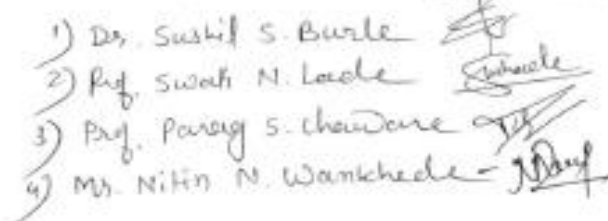 1) Dr. Sushil S. Burle
2) Prof. Swati N. Lade
3) Prof. Parag S. Chaware
4) Mr. Nitin N. Wankhede -